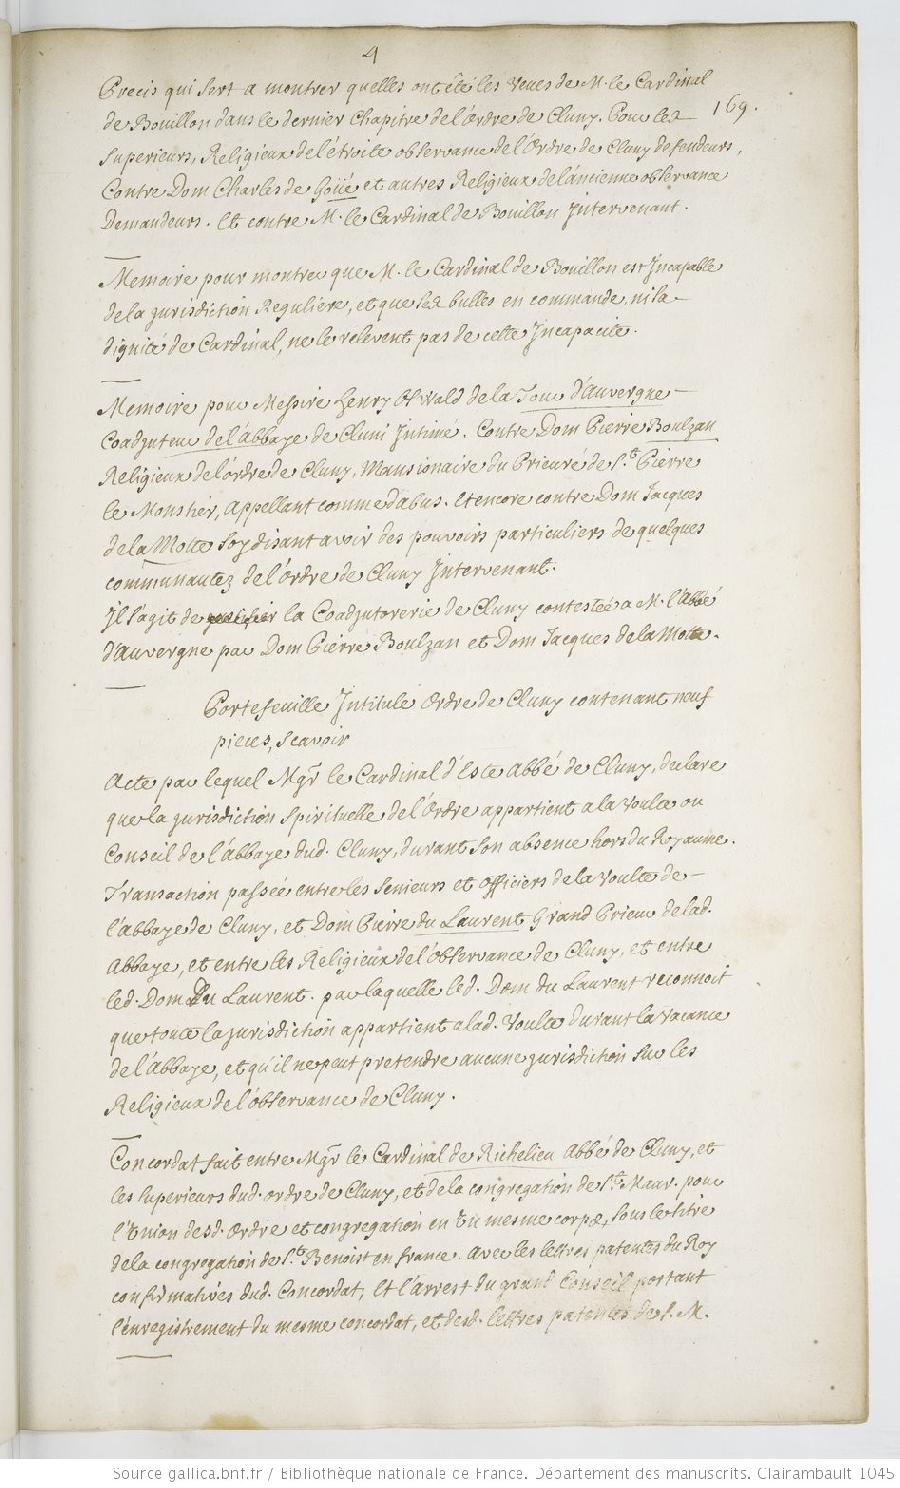 4
169.
Precis qui sert a montrer quelles ont été les veues de M. le Cardinal
de Bouillon dans le dernier Chapitre de l'ordre de Cluny. Pour les
superieurs, Religieux de l'étroite observance de l'Ordre de Cluny defendeurs,
Contre Dom Charles de Goüé et autres Religieux de l'ancienne observance
Demandeurs. Et contre M. le Cardinal de Bouillon Intervenant.
Memoire pour montrer que M. le Cardinal de Bouillon est Incapable
de la jurisdiction Reguliere, et que les bulles en commande, ni la
dignité de Cardinal, ne le relevent pas de cette Incapacite.
Memoire pour Messire henry Oswald de la Tour d'auvergne
Coadjuteur de l'abbaye de Cluni Intimé. Contre Dom Pierre Boulzan
Religieux de l'ordre de Cluny, Mansionaire du Prieuré de St. Pierre
le Monstier, appellant comme d'abus. Et encore contre Dom Jacques
de la Motte soy disant avoir des pouvoirs particuliers de quelques
communautez de l'ordre de Cluny Intervenant.
Il s'agit de la Coadjutorerie de Cluny contestée a M. l'abbé
d'auvergne par Dom Pierre Boulzan et Dom Jacques de la Motte.
Portefeuille Intitule Ordre de Cluny contenant neuf
pieces, scavoir
Acte par lequel Mgr le Cardinal d'Este abbé de Cluny, declare
que la jurisdiction spirituelle de l'Ordre appartient a la voulte ou
Conseil de l'abbaye dud. Cluny, durant son absence hors du Royaume.
Transaction passée entre les senieurs et officiers de la voulte de
l'abbaye de Cluny, et Dom Pierre du Laurent Grand Prieur de lad.
Abbaye, et entre les Religieux de l'observance de Cluny, et entre
led. Dom Du Laurent. par laquelle led. Dom du Laurent reconnoit
que toute la jurisdiction appartient a lad. Voulte durant la vacance
de l'abbaye, et qu'il ne peut pretendre aucune jurisdiction sur les
Religieux de l'observance de Cluny.
Concordat fait entre Mgr le Cardinal de Richelieu abbé de Cluny, et
les superieurs dud. ordre de Cluny, et de la congregation de St. Maur. pour
l'Union desd. ordre et congregation en un mesme corps, sous le titre
de la congregation de St. Benoist en france. avec les lettres patentes du Roy
confirmatives dud. Concordat, Et l'arrest du grand Conseil portant
l'enregistrement du mesme concordat, et desd. lettres patentes de S. M.
Source gallica.bnf.fr / Bibliothèque nationale de France. Département des manuscrits. Clairambault 1045